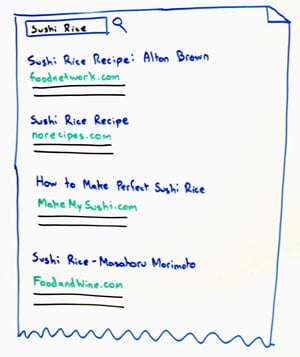 Sushi Rice
Sushi Rice Recipe: Alton Brown
foodnetwork.com
Sushi Rice Recipe
norecipes.com
How to Make Perfect Sushi Rice
MakeMySushi.com
Sushi Rice - Masaharu Morimoto
FoodandWine.com